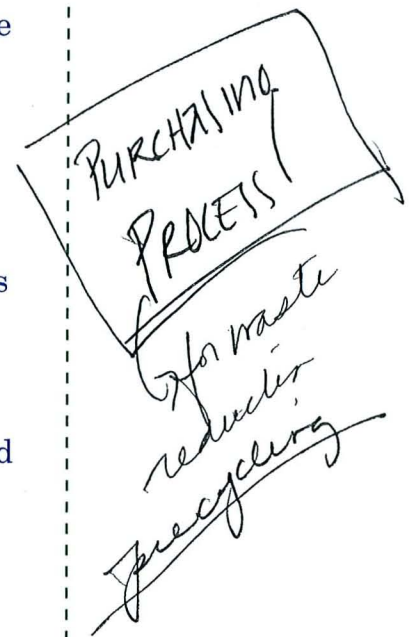 e
s
d
PURCHASING
PROCESS
for waste
reduction
precycling